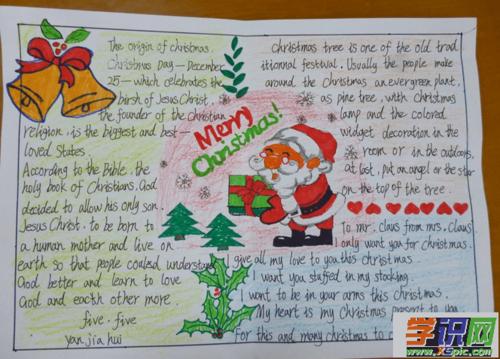 The origin of christmas.
Christmas Day — December
25 — which celebrates the
birsh of Jesus Christ,
the founder of the Christian
religion, is the biggest and best —
loved States.
According to the Bible, the
holy book of Christians, God
decided to allow his only son,
Jesus Christ, to be born to
a human mother and live on
earth so that people couled understand
God better and learn to love
God and eacth other more.
five. five
yan jia hui
Merry
Christmas!
Christmas tree is one of the old trad
itionnal festival. Usually the people make
around the Christmas an evergreen plant,
as pine tree, with Christmas
lamp and the colored
widget decoration in the
room or in the outdoors,
at last, put an angel or the star
on the top of the tree.
To mr. claus from mrs. claus
I only want you for christmas.
I give all my love to you this christmas.
I want you stuffed in my stocking.
I want to be in your arms this christmas.
My heart is my Christmas present to you
For this and many christmas to
学识网
www.xspic.com